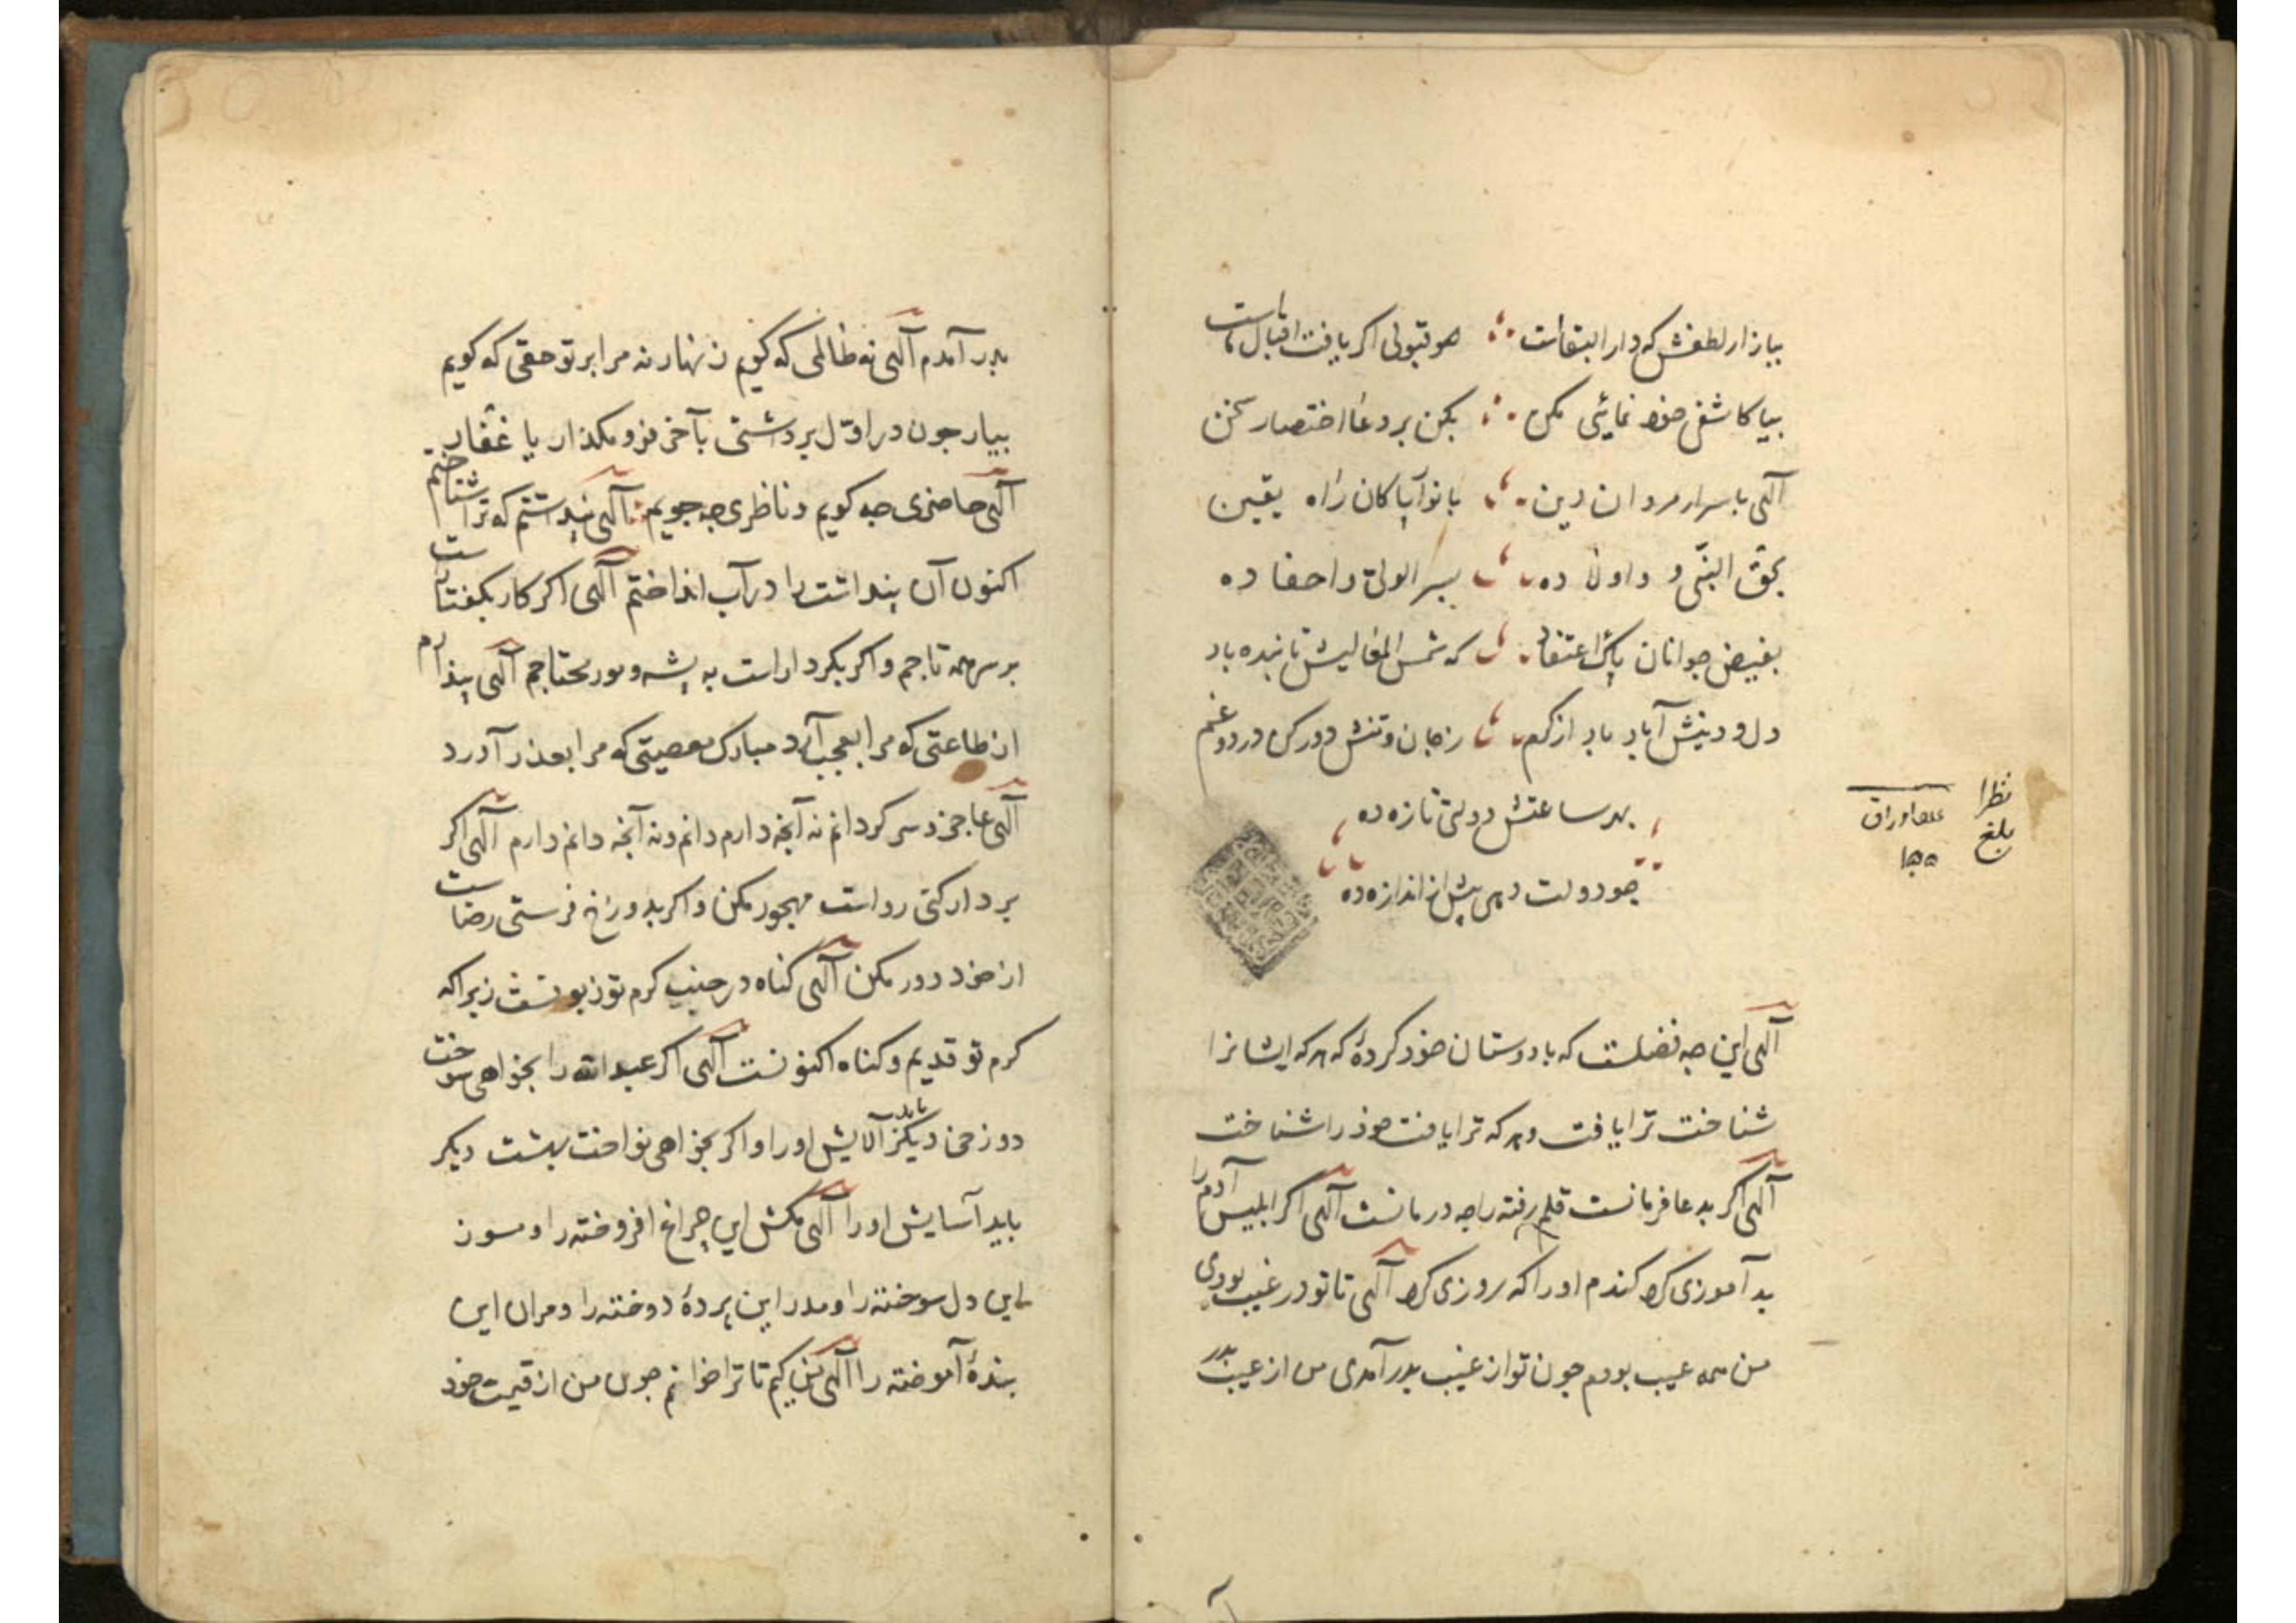 ببازار لطفش که دار البقاست هر قبولی اکر یافت اقبال ماست
بیا کاشفی خود نمائی مکن بکن بر دعا اختصار سخن
آلهی باسرار مردان دین بانوار پاکان راه یقین
بحق النبی و داولاد ده بسر الولی و احفاد ده
بفیض جوانان پاک اعتقاد که شمس المعالیش تابنده باد
دل و دینش آباد باد از کرم ز جان و تنش دور کن درد و غم
بهر ساعتش دولتی تازه ده
چو دولت دهی بیش از اندازه ده
نظرا
بلغ
اوراق
۱۵۵
آلهی این چه فضلست که با دوستان خود کردهٔ که هر که ایشانرا
شناخت ترا یافت و هر که ترا یافت خود را شناخت
آلهی اکر بدعا فرمانست قلم رفته را چه درمانست آلهی اکر ابلیس آدم را
بد آموزی کرد کندم او را که روزی کرد آلهی تا تو در غیب بودی
من همه عیب بودم چون تو از غیب بدر آمدی من از عیب بدر
بدر آمدم آلهی نه ظالمی که کویم زنهار نه مرا بر تو حقی که کویم
بیار چون در اول برداشتی بآخر فرو مکذار یا غفار
آلهی حاضری چه کویم و ناظری چه جویم آلهی پنداشتم که ترا شناختم
اکنون آن پنداشت را در آب انداختم آلهی اکر کار بکفتارست
بر سر همه تاجم و اکر بکردار است به پشه و مور محتاجم آلهی بیزارم
از طاعتی که مرا بعجب آرد مبارک معصیتی که مرا بعذر آورد
آلهی عاجز و سرکردانم نه آنچه دارم دانم و نه آنچه دانم دارم آلهی اکر
بردار کنی رواست مهجور مکن و اکر بدوزخ فرستی رضاست
از خود دور مکن آلهی کناه در جنب کرم تو زبونست زیرا که
کرم تو قدیم و کناه اکنونست آلهی اکر عبد الله را بخواهی سوخت
دوزخی دیکر باید آلایش او را و اکر بخواهی نواخت بهشت دیکر
باید آسایش او را آلهی مکش این چراغ افروخته را و مسوز
این دل سوخته را و مدر این پردهٔ دوخته را و مران این
بندهٔ آموخته را آلهی من کیم تا ترا خوانم چون من از قیمت خود